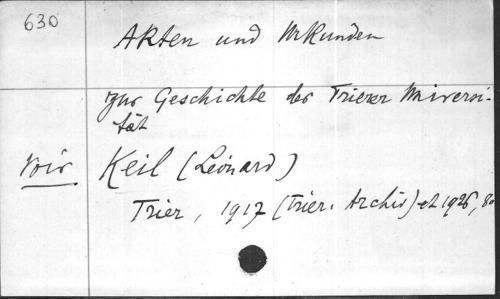 630
Akten und Urkunden
zur Geschichte der Trierer Universi-
tät
Voir Keil (Léonard)
Trier, 1917 (Trier. Archiv) et 1926, 8o